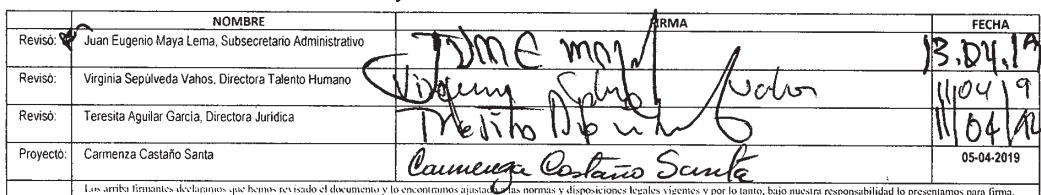 NOMBRE FIRMA FECHA
Revisó: Juan Eugenio Maya Lema, Subsecretario Administrativo 13.04.19
Revisó: Virginia Sepúlveda Vahos, Directora Talento Humano Virginia Vahos 11/04/19
Revisó: Teresita Aguilar Garcia, Directora Jurídica Teresita 11/04/
Proyectó: Carmenza Castaño Santa Carmenza Castaño Santa 05-04-2019
Los arriba firmantes declaramos que hemos revisado el documento y lo encontramos ajustado las normas y disposiciones legales vigentes y por lo tanto, bajo nuestra responsabilidad lo presentamos para firma.